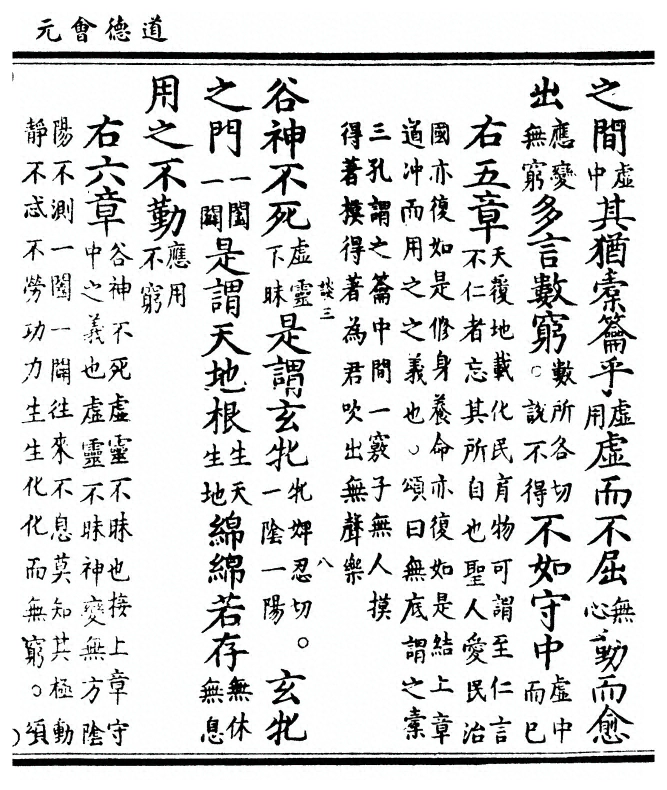 道德會元
之間虛中其猶橐籥乎虛用虛而不屈無心動而愈
出應變無窮多言數窮數所各切。說不得不如守中虛中而已
右五章天覆地載化民育物可謂至仁言
不仁者忘其所自也聖人愛民治
國亦復如是修身養命亦復如是結上章
道冲而用之之義也。頌曰無底謂之橐
三孔謂之籥中間一竅子無人摸
得著摸得著為君吹出無聲樂
談三
八
谷神不死虛靈不昧是謂玄牝牝婢忍切。一陰一陽玄牝
之門一闔一闢是謂天地根生天生地綿綿若存無休無息
用之不勤應用不窮
右六章谷神不死虛靈不昧也接上章守
中之義也虛靈不昧神變無方陰
陽不測一闔一闢往來不息莫知其極動
靜不忒不勞功力生生化化而無窮。頌